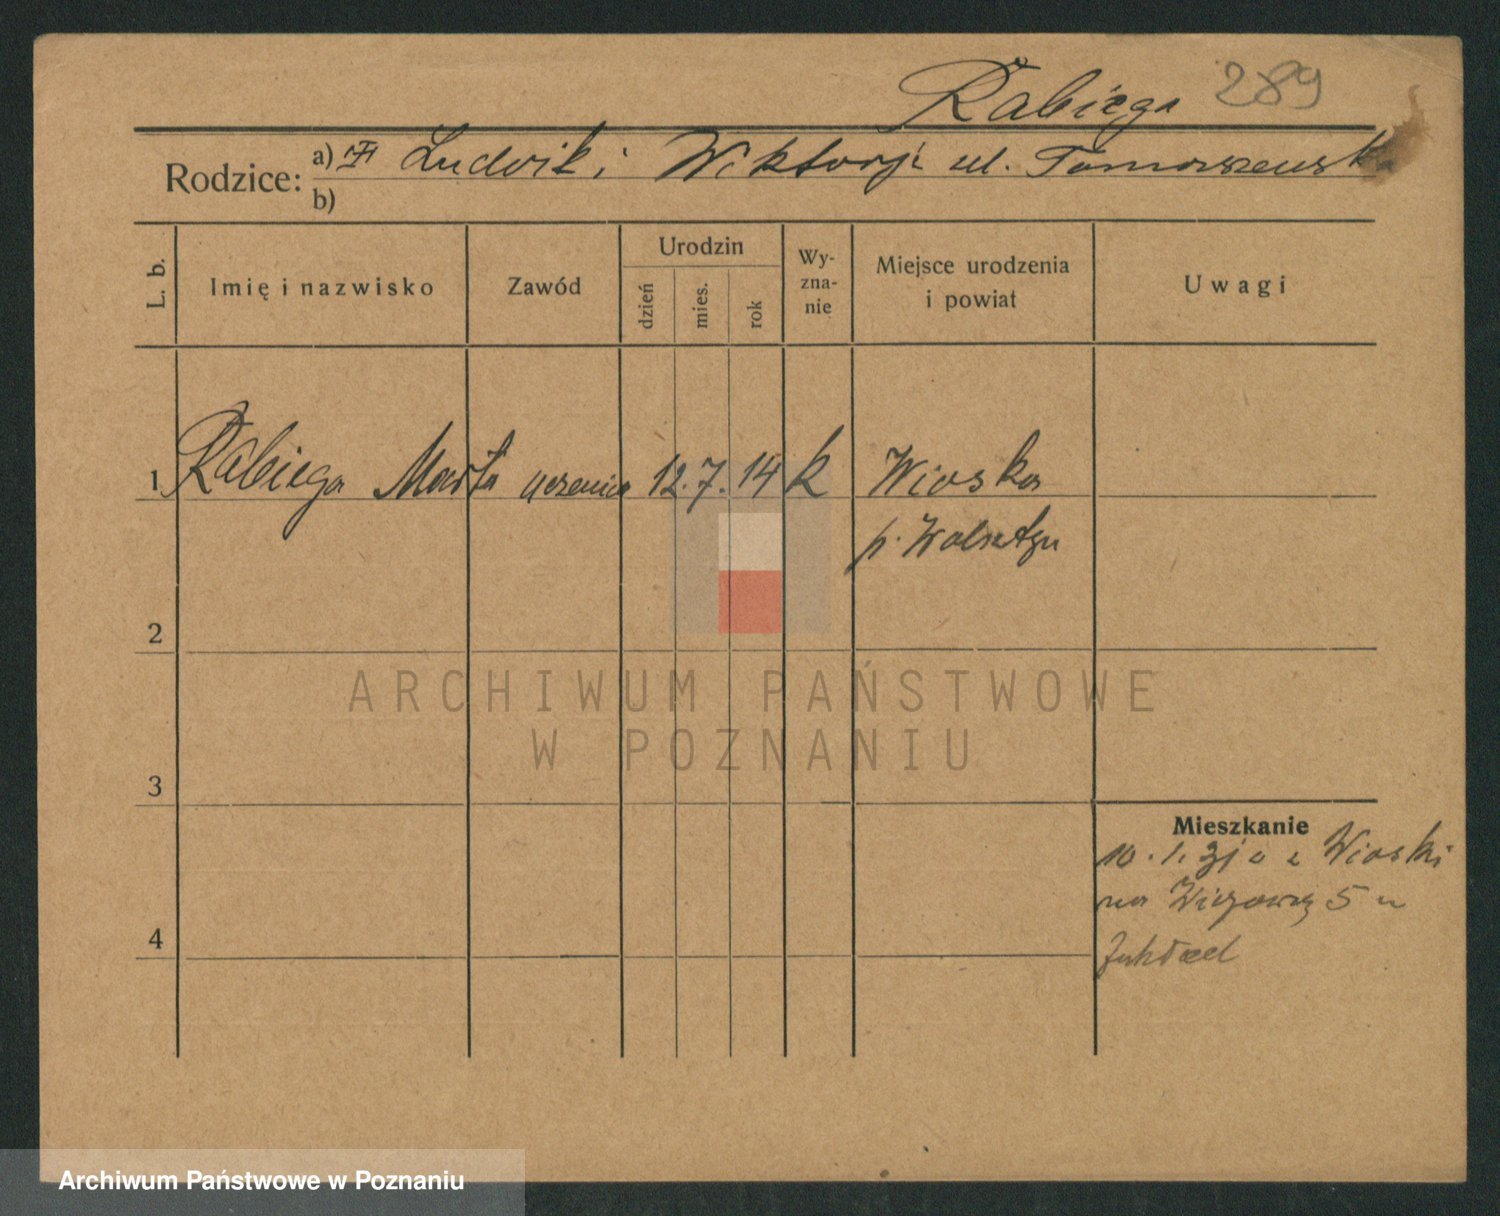 Rabiega 289
Rodzice: a) Ludwik i Wiktorji ul. Tomaszewsk
b)
L. b. Imię i nazwisko Zawód Urodzin dzień mies. rok Wy-zna-nie Miejsce urodzenia i powiat Uwagi
1 Rabiega Marta uczenica 12. 7. 14 k Wioska
p. Wolsztyn
2
ARCHIWUM PAŃSTWOWE
W POZNANIU
3
Mieszkanie
10. 1. 31 Wioski
na 5
4
Archiwum Państwowe w Poznaniu